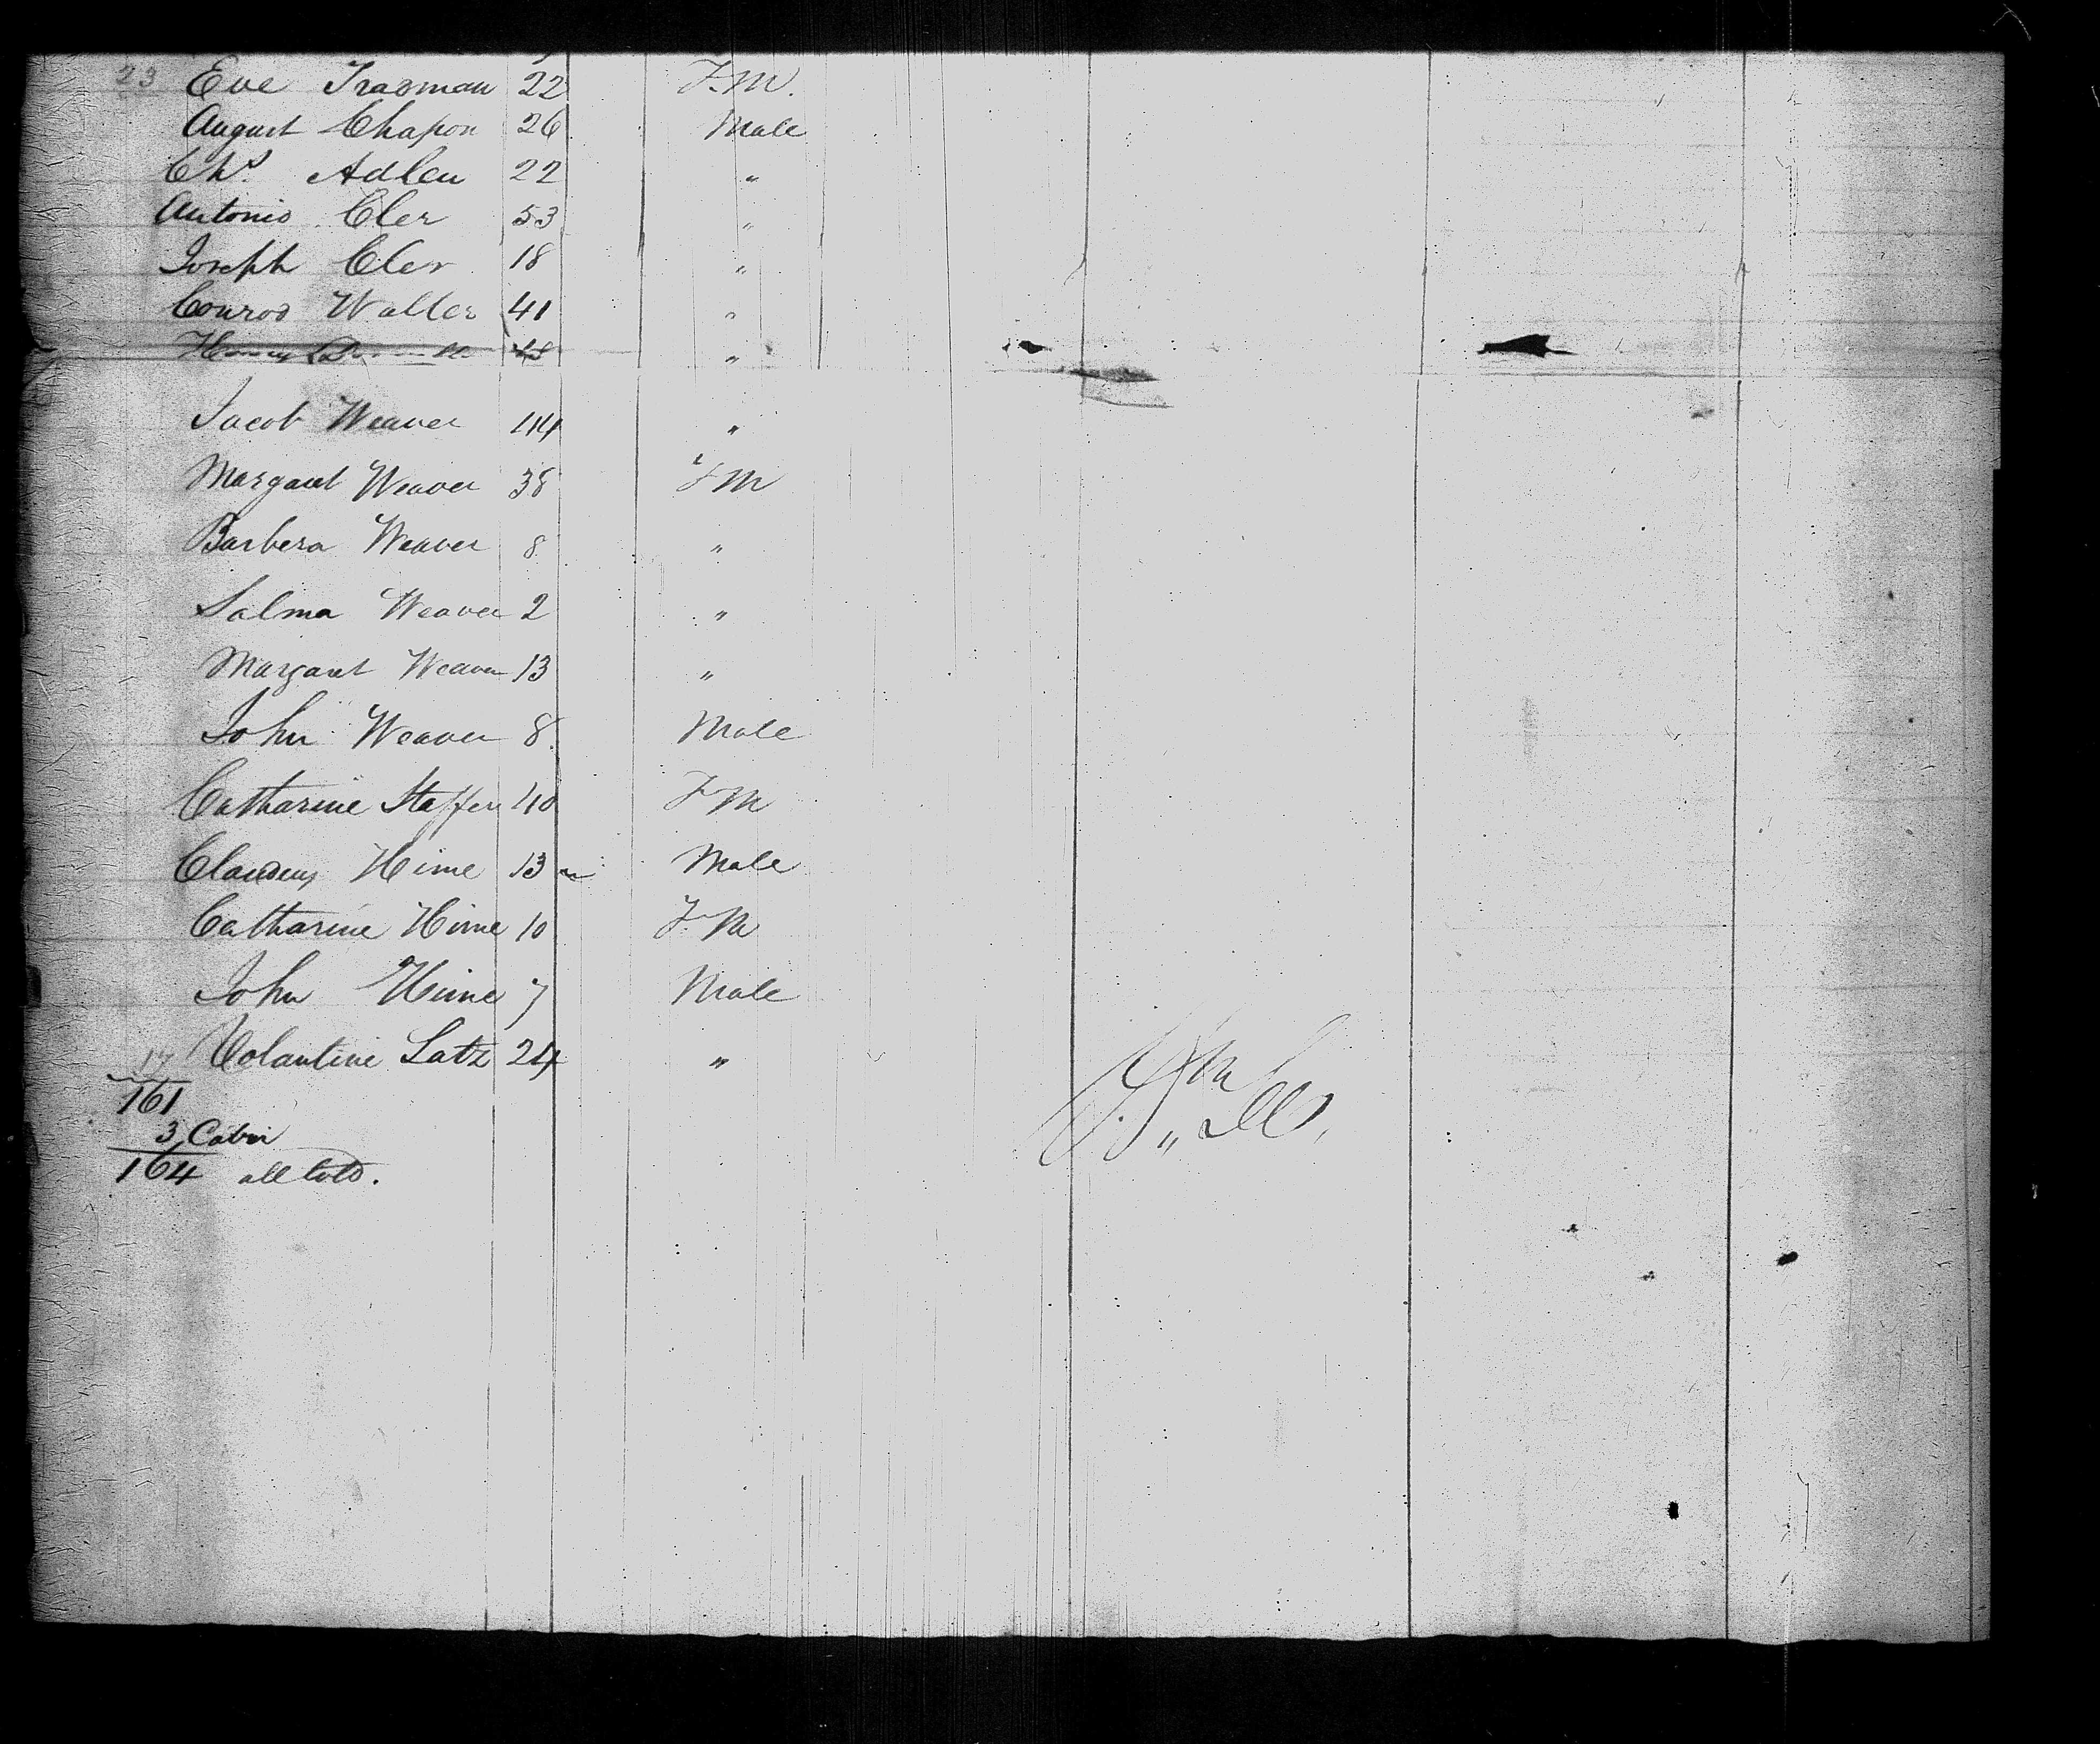 23 Eve Trasman 22 F.M.
August Chapon 26 Male
Chs. Adlen 22 "
Antonio Cler 53 "
Joseph Cler 18 "
Conrod Waller 41 "
"
Jacob Weaver 44 "
Margaret Weaver 38 F M
Barbera Weaver 8 "
Salma Weaver 2 "
Margaret Weaver 13 "
John Weaver 8 Male
Catharine Staffen 40 F M
Claudeus Hime 13 Male
Catharine Hime 10 F. M
John Hime 7 Male
17 Volantine Latz 24 "
161
3 Cabin
164 all told.